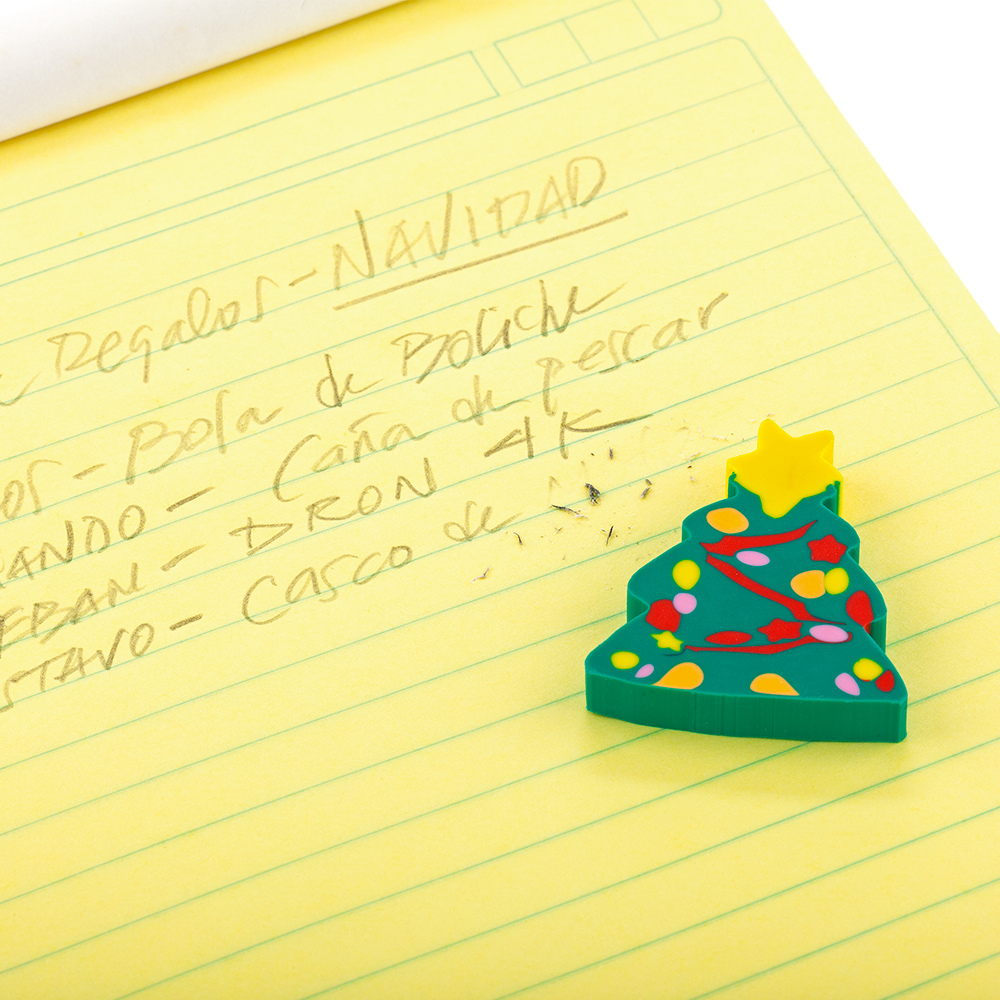 Regalos - NAVIDAD
os - Bola de Boliche
ANDO - Caña de pescar
EBAN - DRON 4K
STAVO - Casco de